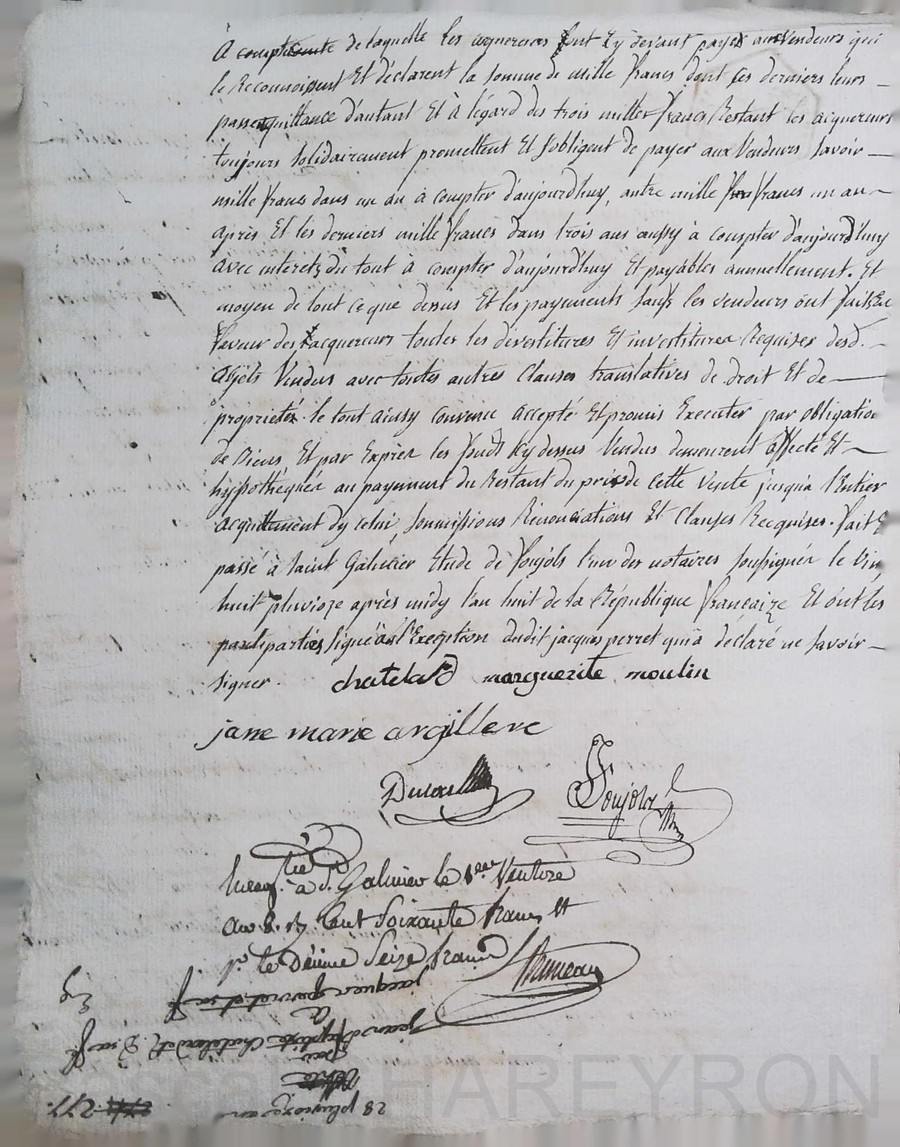 à compte de laquelle les acquereurs ont cy devant payé aux Vendeurs qui
le Reconnoissent Et déclarent la somme de mille francs dont ces derniers leurs
passent quittance d'autant Et à l'égard des trois mille francs Restant les acquereurs
toujours solidairement promettent Et s'obligent de payer aux Vendeurs savoir
mille francs dans un an à compter d'aujourd'huy, autre mille francs un an
après Et les derniers mille francs dans trois ans aussy à compter d'aujourd'huy
avec interets du tout à compter d'aujourd'huy Et payables annuellement. Et
moyen de tout ce que dessus Et les payements faits les vendeurs ont fait En
faveur des acquereurs toutes les devestitures Et investitures Requises desd.
objets Vendus avec toutes autres Clauses translatives de droit Et de
proprietés le tout ainsy convenu accepté Et promis Executer par obligation
de Biens Et par Exprez les fonds Cy dessus Vendus demeurent affecté Et
hypothéquer au payement du Restant du prix de cette Vente jusqu'à l'Entier
acquittement dy celui, soumissions Rénonciations Et Clauses Requises. fait E
passé à Saint Galmier Etude de Soujols l'un des notaires soussignés le Vin
huit pluvioze après midy l'an huit de la République françaize Et ont les
parties signé à l'Exception dudit jacques perret qui a déclaré ne savoir
signer. chatelard marguerite moulin
jane marie argillere
Soujols
à St. Galmier le 1er Ventose
an 8. Cent Soixante francs Et
pr. le Décime Seize francs
jacques
jean Baptiste Chatelard
28 pluvioze an
277
HAREYRON